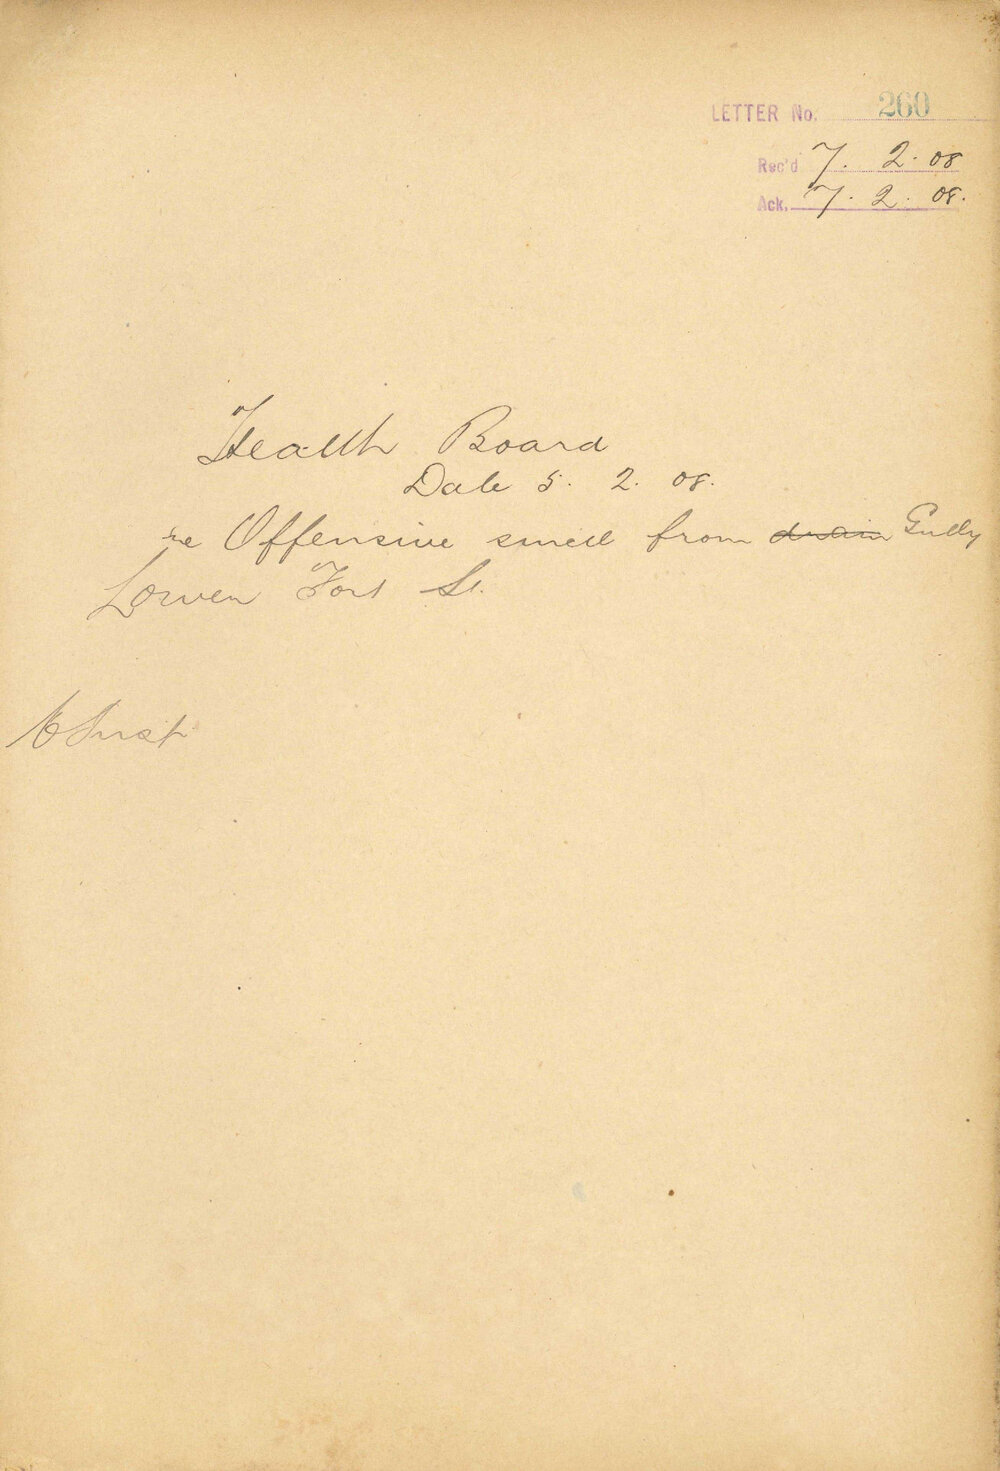 LETTER No. 260
Rec'd 7. 2. 08
Ack. 7. 2. 08.
Health Board
Date 5. 2. 08.
re Offensive smell from drain Gully
Lower Fort St.